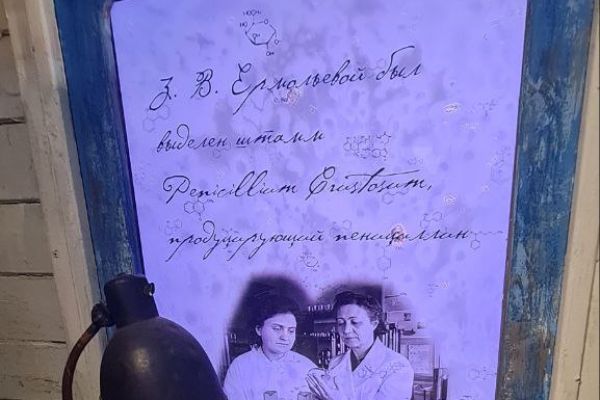 З. В. Ермольевой был
выделен штамм
Penicillium Crustosum,
продуцирующий пенициллин